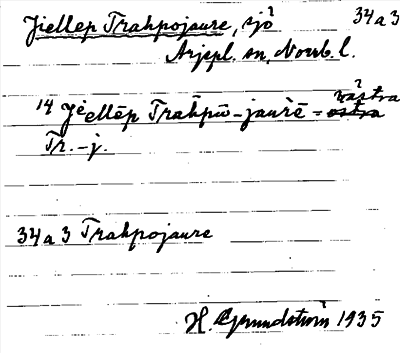 Jiellep Trakpojaure, sjö 34 a 3
Arjepl. sn, Norrb. l.
14 Jiellēp Trākpū-jaurē = västra
Tr.-j.
34 a 3 Trakpojaure
H. Grundström 1935